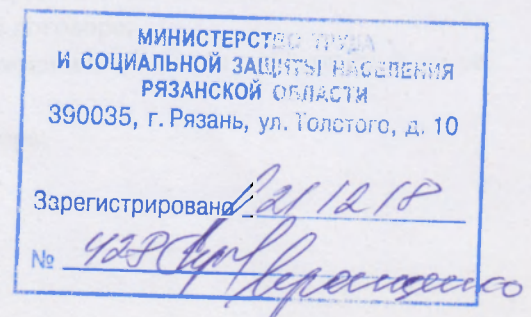 МИНИСТЕРСТВО ТРУДА
И СОЦИАЛЬНОЙ ЗАЩИТЫ НАСЕЛЕНИЯ
РЯЗАНСКОЙ ОБЛАСТИ
390035, г. Рязань, ул. Толстого, д. 10
Зарегистрировано 21 12 18
№ 428